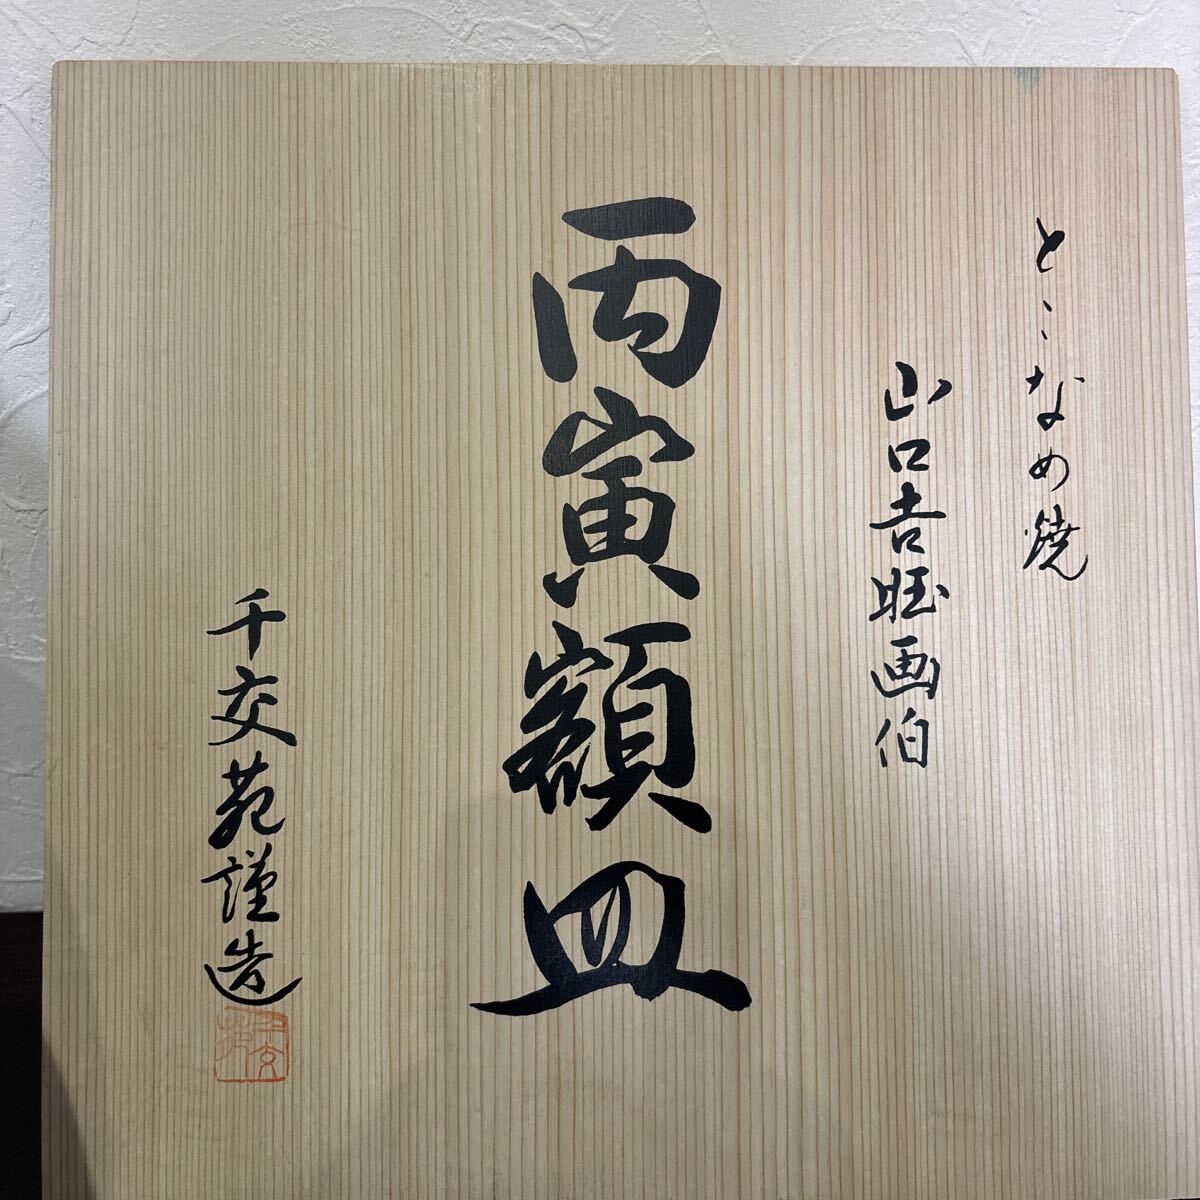 とこなめ焼
山口吉画伯
丙寅額皿
千交苑謹造
千交苑